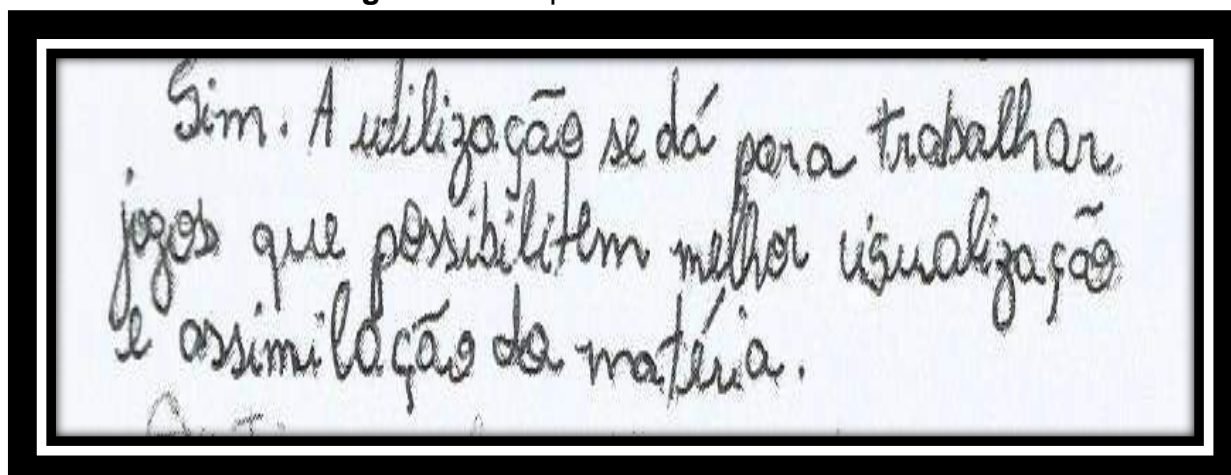 Sim. A utilização se dá para trabalhar
jogos que possibilitem melhor visualização
e assimilação da matéria.